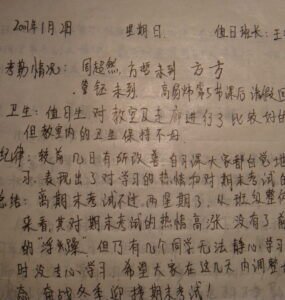 2007年1月7日 星期日 值日班长:王
考勤情况:周超然,方哲未到 方方
董钰未到 高易师第5节课后请假回
卫生:值日生对教室及走廊进行了比较好的
但教室内的卫生保持不好
纪律:较前几日有所改善 自习课大家都自觉地
表现出了对学习的热情和对期末考试的
总结:离期末考试不过两星期了,从班级整体
来看,其对期末考试的热情高涨,没有了前
的"浮躁",但仍有几个同学无法静心学习
时没专心学习,希望大家在这几天内调整
奋战冬季 迎接期末考试!